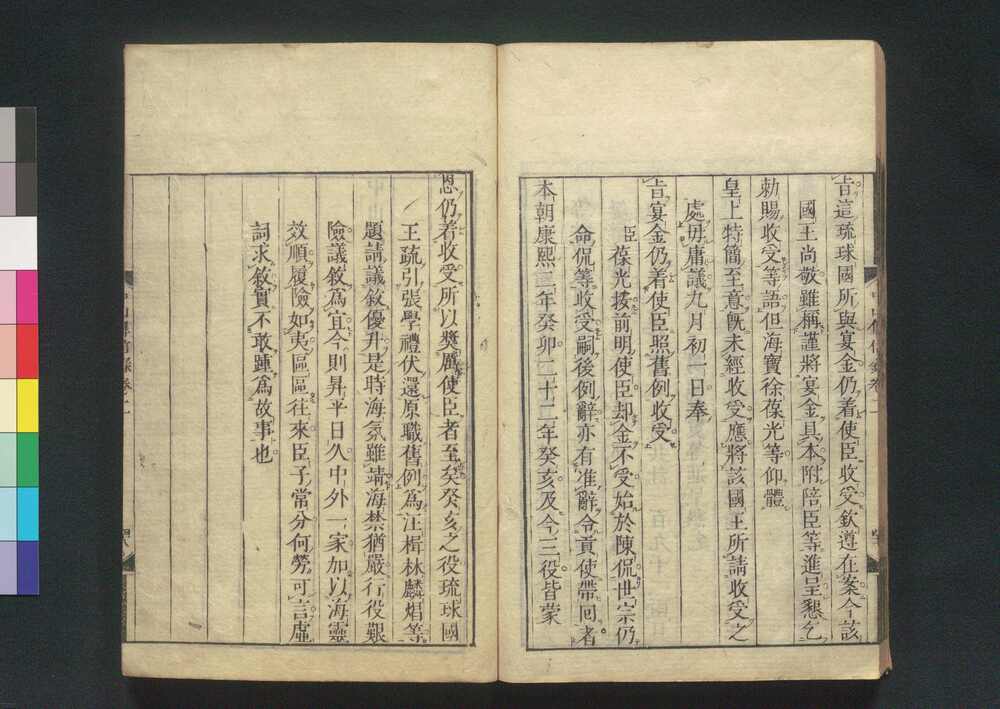 旨這琉球國所與宴金仍着使臣收受欽遵在案今該
國王尚敬雖稱謹將宴金具本附陪臣等進呈懇乞
勅賜收受等語但海寶徐葆光等仰體
皇上特簡至意既未經收受應將該國王所請收受之
處毋庸議九月初二日奉
旨宴金仍着使臣照舊例收受
臣葆光按前明使臣却金不受始於陳侃世宗仍
命侃等收受嗣後例辭亦有准辭令貢使帶回者
本朝康熙二年癸卯二十二年癸亥及今三役皆蒙
中山傳信錄卷二
恩仍着收受所以奬厲使臣者至矣癸亥之役琉球國
王疏引張學禮伏還原職舊例爲汪楫林麟焻等
題請議敘優升是時海氛雖靖海禁猶嚴行役艱
險議敘爲宜今則昇平日久中外一家加以海靈
效順履險如夷區區往來臣子常分何勞可言虛
詞求敘實不敢踵爲故事也
中山傳信錄卷二
四八